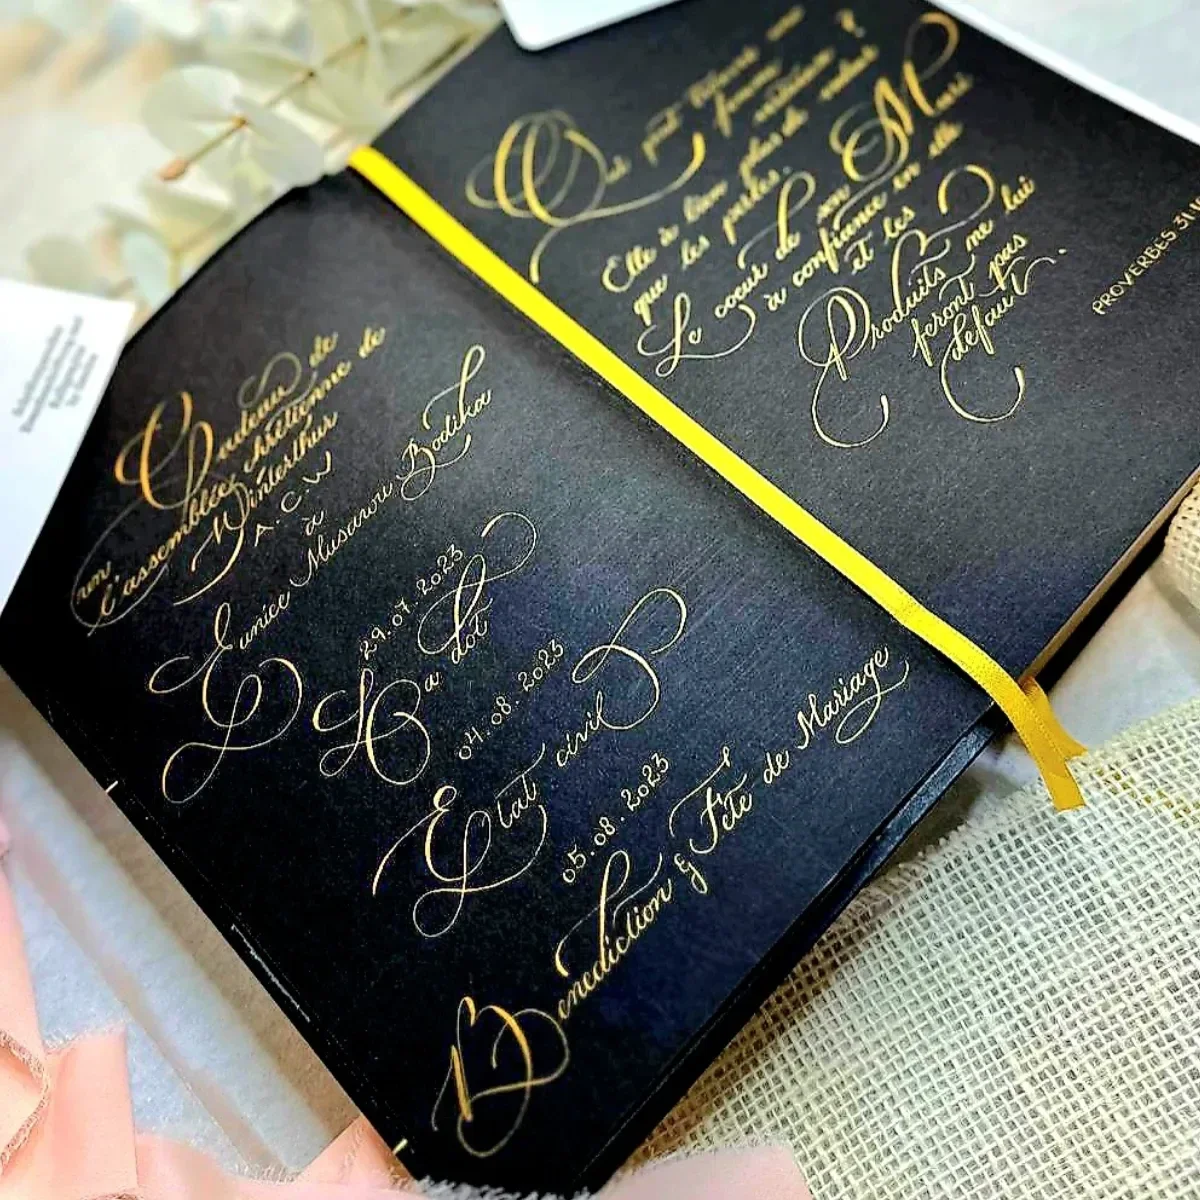 Cadeau de
l'assemblée chrétienne de
Winterthur
A.C.W
à
Eunice Musarou Bodika
29.07.2023
La dot
04.08.2023
Etat civil
05.08.2023
Benediction & Fête de Mariage
Qui peut une
femme
vertueuse ?
Elle à bien plus de valeur
que les perles.
Le coeur de son Mari
à confiance en elle
et les
Produits ne lui
feront pas
defaut.
PROVERBES